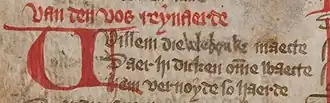 van den vos reynaerde
Willem die vele bouke maecte
Daer hi dicken om̄e waecte
Hem vernoyde so haerde